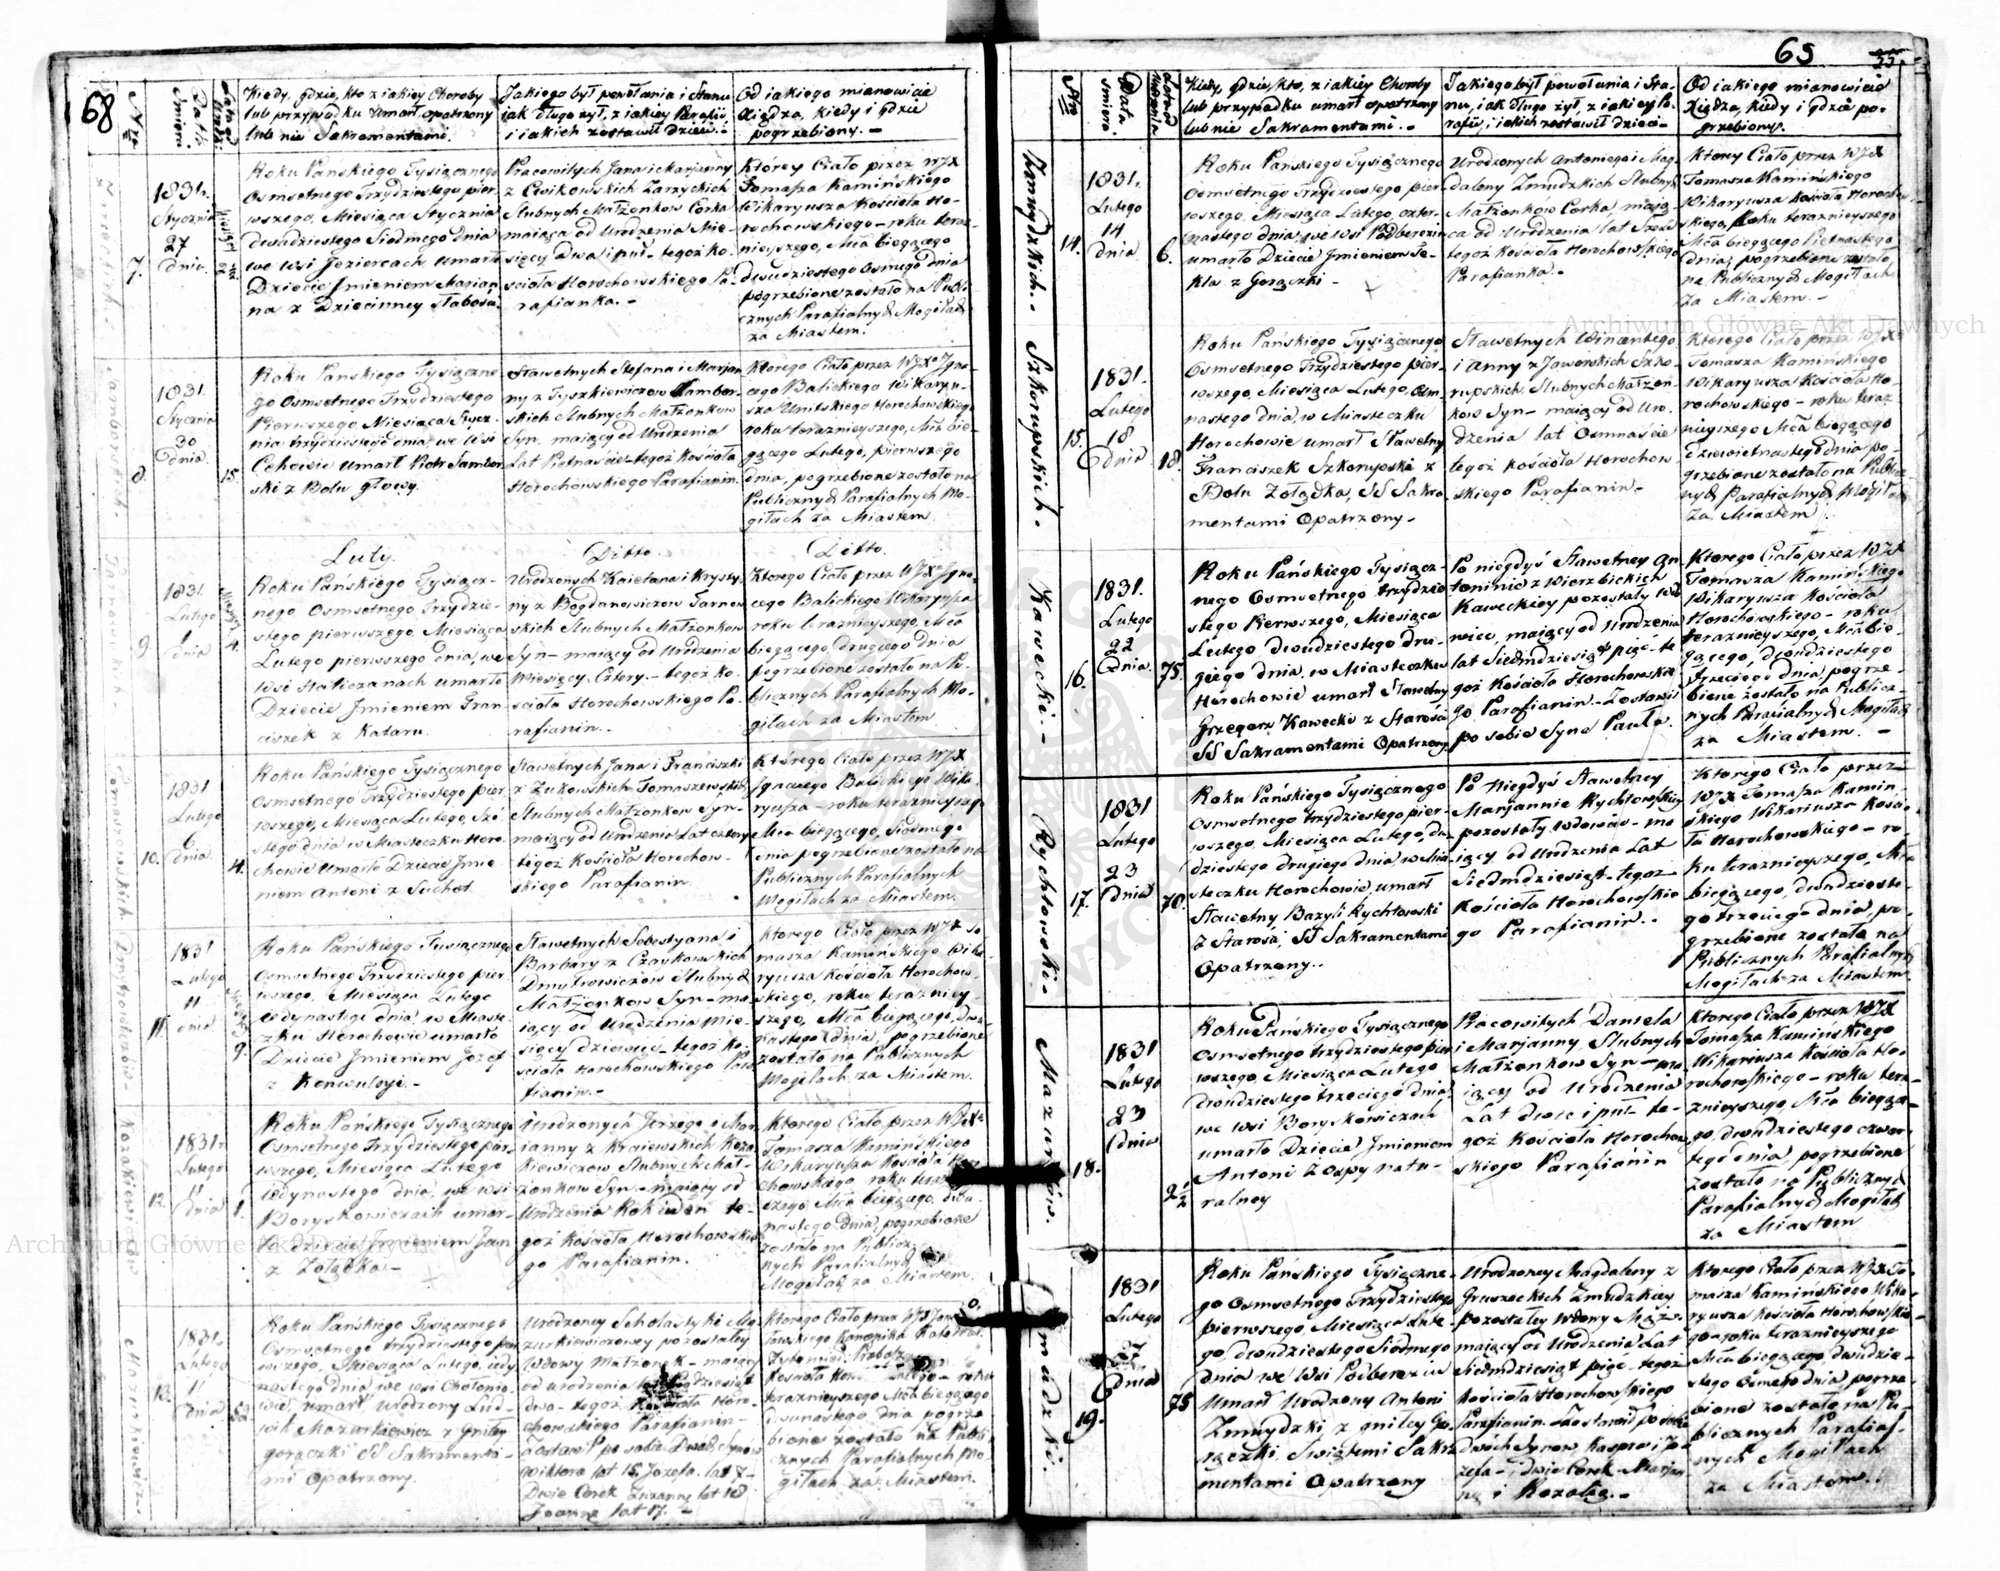 68
Nro
Data Smierci
Kiedy, gdzie, kto z iakiey Choroby
lub przypadku Umarł opatrzony
lub nie Sakramentami.
Jakiego był powołania i Stanu
jak długo żył, z iakiey Parafii,
i iakich zostawił dzieci.
Od iakiego mianowicie
Xiędza, kiedy i gdzie
pogrzebiony. –
7.
1831.
Stycznia
27
dnia
Roku Pańskiego Tysiącznego
Osmsetnego Trzydziestego pier
wszego, Miesiąca Stycznia
dwudziestego Siodmego dnia
we wsi Jeziercach, Umarło
Dziecie Jmieniem Marian
na z Dziecinney Słabości
Pracowitych Jana i Maryanny
z Cwikowskich Zarzyckich
Slubnych Małżonkow Corka
maiąca od Urodzenia Mie-
sięcy Dwa i puł – tegoż Ko
scioła Horochowskiego Pa-
rafianka. –
Którey Ciało przez WJX
Tomasza Kamińskiego
Wikaryusza Kościoła Ho-
rochowskiego – roku teraz
nieyszego, Mca bieżącego
dwudziestego Osmego dnia
pogrzebione zostało na Publi
cznych Parafialnych Mogiłach
za Miastem.
8.
1831.
Stycznia
30
dnia
15.
Roku Pańskiego Tysiączne
go Osmsetnego Trzydziestego
Pierwszego, Miesiąca Stycz-
nia trzydziestego dnia, we Wsi
Cehowie Umarł Piotr Sambor
ski z Bolu głowy.
Sławetnych Stefana i Marjan
ny z Tyszkiewiczow Sambor-
skich Slubnych Małżonkow
Syn, maiący od Urodzenia
Lat Pietnaście – tegoż Kościoła
Horochowskiego Parafianin.
Ktorego Ciało przez WJX Igna-
cego Balickiego Wikaryu-
sza Unitskiego Horochowskiego
roku terazńieyszego, Mca bie-
żącego Lutego, pierwszego
dnia, pogrzebione zostało na
Publicznych Parafialnych Mo-
giłach za Miastem.
Luty.
Ditto.
Ditto.
9.
1831.
Lutego
1
dnia
4.
Roku Pańskiego Tysiącz-
nego Osmsetnego Trzydzie-
stego pierwszego, Miesiąca
Lutego pierwszego dnia, we
Wsi Haliczanach umarło
Dziecie Jmieniem Fran
ciszek z Kataru.
Urodzonych Kaietana i Krysty
ny z Bogdanowiczow Tarnow
skich Slubnych Małżonkow
Syn – maiący od Urodzenia
Miesięcy Cztery. – tegoż Ko-
scioła Horochowskiego Pa
rafianin. –
Ktorego Ciało przez WJX Igna-
cego Balickiego Wikaryusza
roku terazńieyszego, Mca
bieżącego drugiego dnia
pogrzebione zostało na Pu-
blicznych Parafialnych Mo-
giłach za Miastem
10.
1831
Lutego
6
dnia
4.
Roku Pańskiego Tysiącznego
Osmsetnego Trzydziestego pier
wszego, Miesiąca Lutego, Szo
stego dnia w Miasteczku Horo
chowie Umarło Dziecie Jmie
niem Antoni z Suchot.
Sławetnych Jana i Franciszki
z Zukowskich Tomaszewskich
Slubnych Małżonkow Syn –
maiący od Urodzenia Lat cztery
tegoż Kościoła Horochow-
skiego Parafianin.
Którego Ciało przez WJX
Ignacego Balickiego Wika
ryusza – roku terazńieyszego
Mca bieżącego, Siodmego
dnia pogrzebione zostało na
Publicznych Parafialnych
Mogiłach za Miastem.
11.
1831
Lutego
11
dnia
9.
Roku Pańskiego Tysiącznego
Osmsetnego Trzydziestego pier
wszego, Miesiąca Lutego
jedynastego dnia, w Miaste
czku Horochowie umarło
Dziecie Jmieniem Jozef
z Konwulsyi –
Sławetnych Sebestyana i
Barbary z Czaykowskich
Dmytrowiczow Slubnych
Małżonkow Syn – ma-
iący od Urodzenia Mie-
sięcy dziewięć – tegoż Ko-
scioła Horochowskiego Para
fianin. –
Ktorego Ciało przez WJX To
masza Kamińskiego Wika-
ryusza Kościoła Horochow
skiego, roku terazńiey
szego, Mca bieżącego, dwu-
nastego dnia, pogrzebione
zostało na Publicznych
Mogiłach za Miastem.
12.
1831.
Lutego
11
dnia
1.
Roku Pańskiego Tysiącznego
Osmsetnego Trzydziestego pier-
wszego, Miesiąca Lutego
iedynastego dnia, we wsi
Boryskowiczach umar-
ło dziecie Jmieniem Jan
z Zołądka –
Urodzonych Jerzego i Mar
ianny z Kraiewskich Koza
kiewiczow, Slubnych Mał-
żonkow Syn – maiący od
Urodzenia Rok ieden te-
goż Kościoła Horochowskie
go Parafianin.
Ktorego Ciało przez WJX
Tomasza Kamińskiego
Wikaryusza Kościoła Horo
chowskiego roku teraz
szego Mca bieżącego, dwu-
nastego dnia, pogrzebione
zostało na Publicz
nych Parafialnych
Mogiłach za Miastem.
13.
1831.
Lutego
11
dnia
52.
Roku Pańskiego Tysiącznego
Osmsetnego trzydziestego pier
wszego, Miesiąca Lutego, iedy
nastego dnia, we wsi Chołonie-
wie, umarł Urodzony Lud-
wik Mazurkiewicz z Gniłey
gorączki SS Sakramenta-
mi Opatrzony.
Urodzoney Scholastyki Ma
zurkiewiczowey pozostałey
Wdowy Małżonek – maiący
od urodzenia lat
dwa – tegoż Kościoła Horo-
chowskiego Parafianin –
Zostawił po sobie Dwóch Synow
Wiktora lat 15. Jozefa lat 7 –
Dwie Corek Zuzannę lat 10
Joannę lat 17. –
Ktorego Ciało przez WJX
Kanonika Katedral.
Kościoła Horochowskiego – roku
terazńieyszego Mca bieżącego
dwunastego dnia pogrze
bione zostało na Publi
cznych Parafialnych Mo
giłach za Miastem.
65
55.
Nro
Data Smierci
Kiedy, gdzie, kto, z iakiey Choroby
lub przypadku umarł opatrzony
lub nie Sakramentami. –
Jakiego był powołania i Sta-
nu, iak długo żył, z iakiey Pa-
rafii, i iakich zostawił dzieci –
Od iakiego mianowicie
Xiędza, kiedy i gdzie po-
grzebiony.
Zmudzkich.
14.
1831.
Lutego
14
dnia
6.
Roku Pańskiego Tysiącznego
Osmsetnego Trzydziestego pier
wszego, Miesiąca Lutego, czter-
nastego dnia, we Wsi Podberezin
umarło Dziecie Jmieniem Te-
kla z Gorączki –
Urodzonych Antoniego i Mag
daleny Zmudzkich Slubnych
Małżonków Corka, maią-
ca od Urodzenia lat Sześć
tegoż Kościoła Horochowskiego
Parafianka. –
Ktorey Ciało przez WJX
Tomasza Kamińskiego
Wikaryusza Kościoła Horochow
skiego, Roku terazńieyszego
Mca bieżącego Pietnastego
dnia, pogrzebione zostało
na Publicznych Mogiłach
za Miastem. –
Szkorupskich.
15.
1831.
Lutego
18
dnia
18.
Roku Pańskiego Tysiącznego
Osmsetnego Trzydziestego pier-
wszego, Miesiąca Lutego, Osm
nastego dnia, w Miasteczku
Horochowie umarł Sławetny
Franciszek Szkorupski z
Bolu Zołądka, SS Sakra-
mentami Opatrzony –
Sławetnych Wincentego
i Anny z Jaworskich Szko-
rupskich, Slubnych Małżon-
kow Syn – maiący od Uro-
dzenia lat Osmnaście
tegoż Kościoła Horochow-
skiego Parafianin –
Ktorego Ciało przez WJX
Tomasza Kamińskiego
Wikaryusza Kościoła Ho-
rochowskiego – roku teraz
nieyszego Mca bieżącego
dziewietnastego dnia po-
grzebione zostało na Publicz
nych Parafialnych Mogiłach
za Miastem.
Kawecki. –
16.
1831.
Lutego
22
Dnia
75.
Roku Pańskiego Tysiącz-
nego Osmsetnego trzydzie
stego Pierwszego, Miesiąca
Lutego, dwudziestego dru-
giego dnia, w Miasteczku
Horochowie umarł Sławetny
Grzegorz Kawecki z Starości
SS Sakramentami Opatrzony.
Po niegdyś Sławetney An
toninie z Wierzbickich
Kaweckiey pozostały wdo
wiec, maiący od Urodzenia
lat Siedmdziesiąt pięć – te
goż Kościoła Horochowskie
go Parafianin. – Zostawił
po sobie Syna Pawła.
Ktorego Ciało przez WJX
Tomasza Kamińskiego
Wikaryusza Kościoła
Horochowskiego – roku
terazńieyszego, Mca bie-
żącego, dwudziestego
trzeciego dnia, pogrze-
bione zostało na Publicz-
nych Parafialnych Mogiłach
za Miastem. –
Rychłowski
17.
1831
Lutego
23
dnia
70.
Roku Pańskiego Tysiącznego
Osmsetnego trzydziestego pier-
wszego, Miesiąca Lutego, dwu
dziestego drugiego dnia w Mia
steczku Horochowie, umarł
Sławetny Bazyli Rychłowski
z Starości, SS Sakramentami
Opatrzony. –
Po Niegdyś Sławetney
Marjannie Rychłowskiey
pozostały wdowiec – ma
iący od Urodzenia Lat
Siedmdziesiąt – tegoż
Kościoła Horochowskie
go Parafianin. –
Ktorego Ciało przez
WJX Tomasza Kamin-
skiego Wikariusza Kościo-
ła Horochowskiego – ro-
ku terazńieyszego, Mca
bieżącego, dwudzieste-
go trzeciego dnia, po-
grzebione zostało na
Publicznych Parafialnych
Mogiłach za Miastem.
Mazurkow.
18.
1831
Lutego
23
dnia
2½
Roku Pańskiego Tysiącznego
Osmsetnego trzydziestego pier
wszego, Miesiąca Lutego
dwudziestego trzeciego dnia,
we wsi Boryskowiczach
umarło Dziecie Jmieniem
Antoni Z ospy natu-
ralney
Pracowitych Daniela
i Marjanny, Slubnych
Małżonkow Syn – ma
iący od Urodzenia
Lat dwie i puł – te-
goż Kościoła Horochow
skiego Parafianin
Ktorego Ciało przez WJX
Tomasza Kamińskiego
Wikariusza Kościoła Ho-
rochowskiego – roku tera-
znieyszego, Mca bieżące-
go, dwudziestego czwar-
tego dnia, pogrzebione
zostało na Publicznych
Parafialnych Mogiłach
za Miastem
Zmudzki.
19.
1831
Lutego
27
dnia
75
Roku Pańskiego Tysiączne-
go Osmsetnego Trzydziestego
pierwszego, Miesiąca Lute-
go, dwudziestego Siodmego
dnia we Wsi Podberezin
Umarł Urodzony Antoni
Zmudzki, z gniłey Go-
rączki, Swiętemi Sakra
mentami Opatrzony
Urodzoney Magdaleny z
Gruszeckich Zmudzkiey
pozostałey Wdowy Mąż –
maiący od Urodzenia Lat
Siedmdziesiąt pięć – tegoż
Kościoła Horochowskiego
Parafianin – Zostawił po sobie
dwóch Synow Kaspra i Jo-
zefa – i dwie Corek Marjan
nę i Rozalię. –
Ktorego Ciało przez WJX To-
masza Kamińskiego Wika-
ryusza Kościoła Horochowskie-
go – roku terazńieyszego
Mca bieżącego, dwudzie-
stego Osmego dnia pogrze-
bione zostało na Pu-
blicznych Parafial-
nych Mogiłach
za Miastem.
Archiwum Główne Akt Dawnych
Archiwum Główne Akt Dawnych